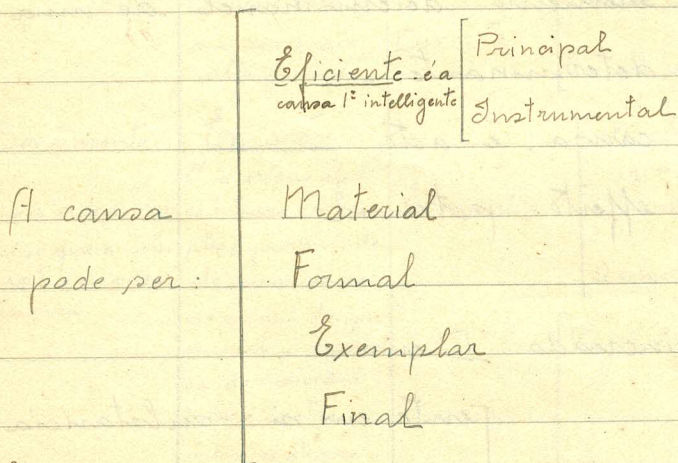 A causa
pode ser:
Eficiente é a
causa 1ª intelligente
Principal
Instrumental
Material
Formal
Exemplar
Final